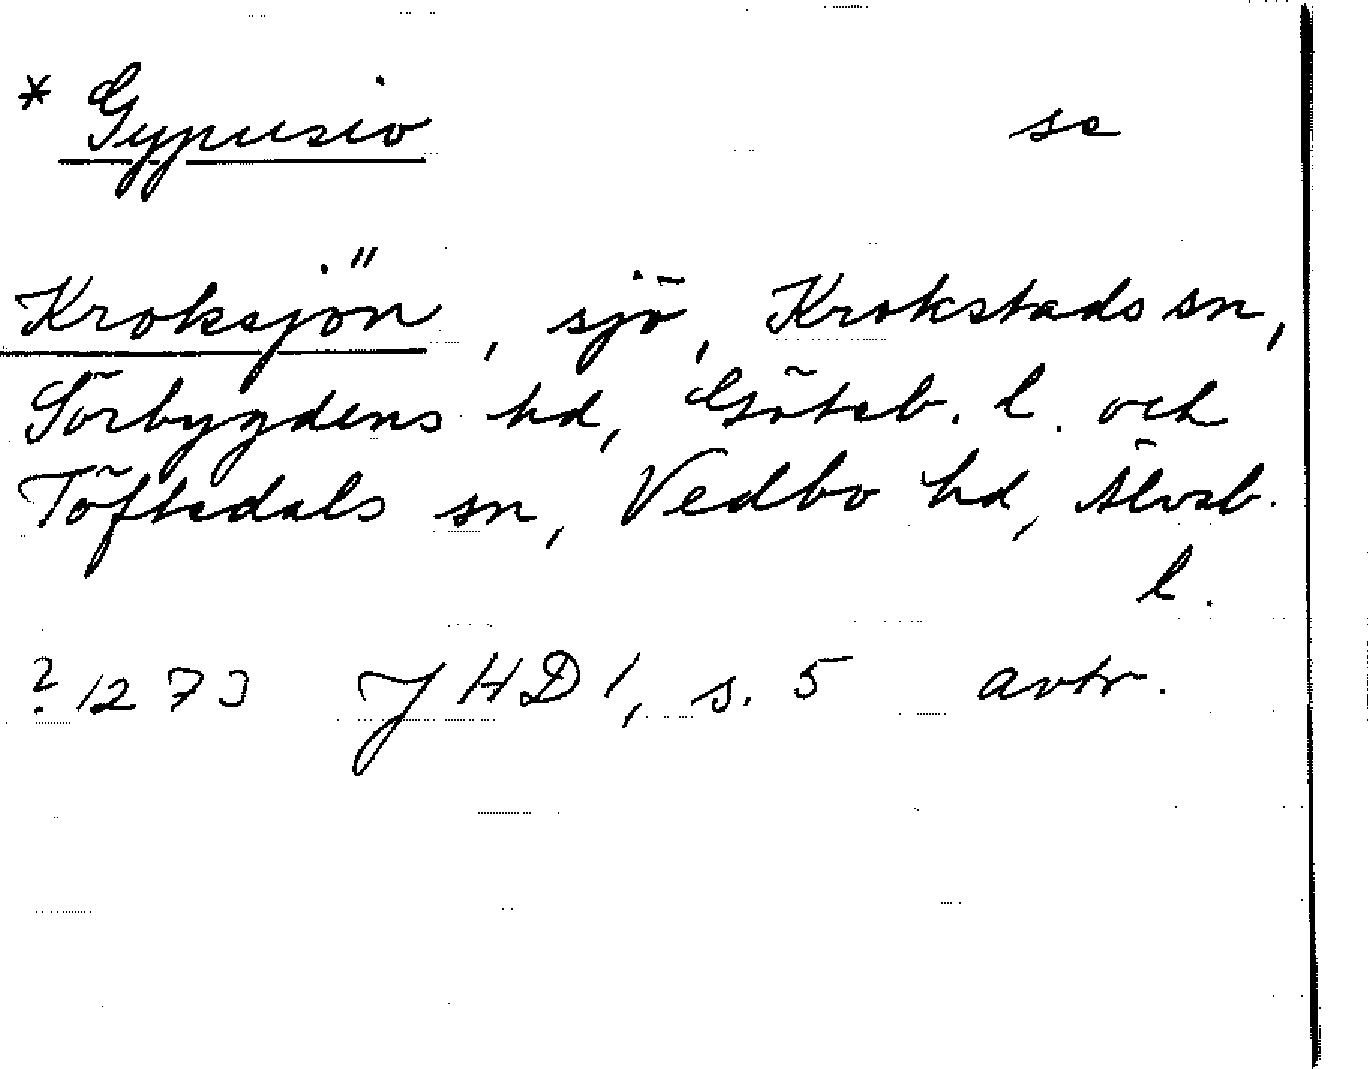 * Gypusio se
Kroksjön, sjö, Krokstads sn,
Sörbygdens hd, Göteb. l. och
Töftedals sn, Vedbo hd, Älvsb.
l.
? 1273 JHD 1, s. 5 avtr.